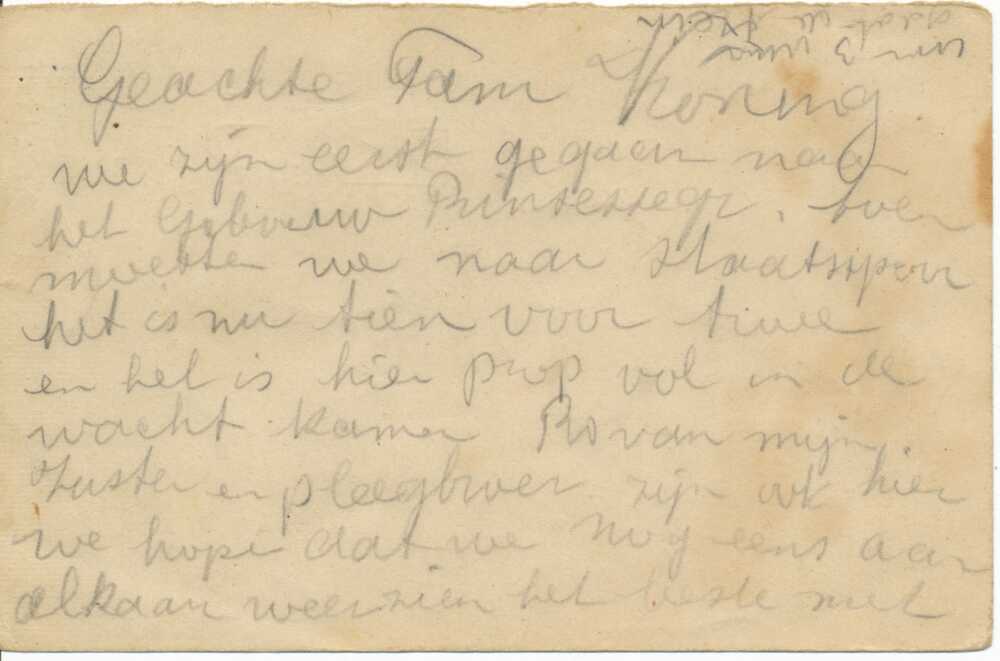 Geachte Fam Koning
we zijn eerst gegaan naar
het Gebouw Prinsessegr. toen
moesten we naar staatsspoor
het is nu tien voor twee
en het is hier prop vol in de
wacht kamer Ro van mijn
Zuster en pleegbroer zijn ook hier
we hope dat we nog eens aan
elkaar weerzien het beste met
om 3 uur
gaat de trein